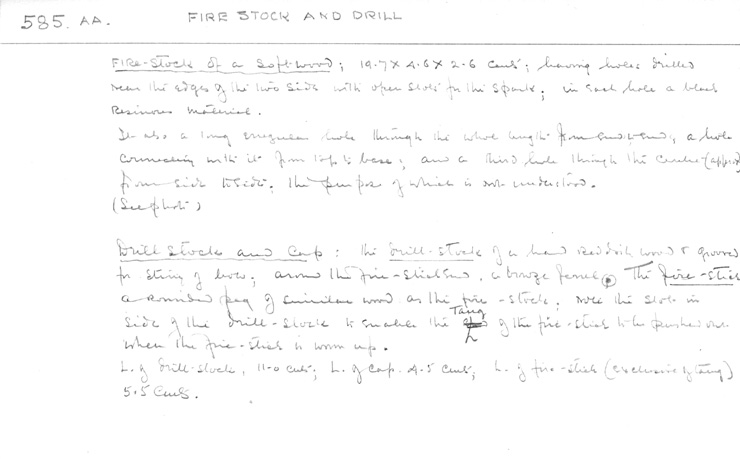 585. AA. FIRE STOCK AND DRILL
Fire-Stock of a soft-wood; 19.7 x 4.6 x 2.6 cents; having holes drilled
near the edges of the two sides with open slots for the spark; in each hole a black
resinous material.
Is also a long irregular hole through the whole length from end to end, a hole
connecting with it from top to base; and a third hole through the centre (approx)
from side to side, the purpose of which is not understood.
(See photo)
Drill Stock and Cap: the drill-stock of a hard reddish wood & grooved
for string of bow; around the fire-stick end, a bronze ferrel. The fire-stick
a rounded peg of similar wood as the fire-stock; note the slot in
side of the drill-stock to enable the Tang of the fire-stick to be pushed out
when the fire-stick is worn up.
L. of drill-stock, 11.0 cents; L. of cap. 4.5 cents; L. of fire-stick (exclusive of tang)
5.5 cents.